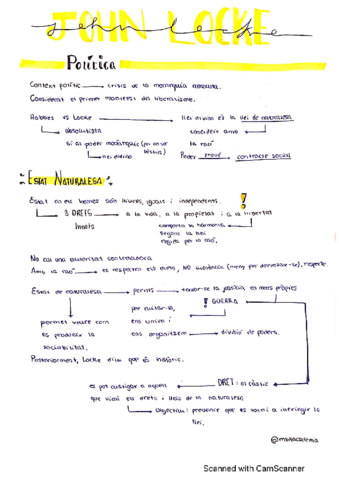 JOHN LOCKE
John Locke
Política
Context polític → crisis de la monarquia absoluta.
Considerat el primer manifest del liberalisme.
Hobbes vs Locke → llei divina és la llei de naturalesa
absolutista
coincideix amb la raó
si al poder monàrquic (per no ser
llei divina
Poder prové contracte social
ESTAT NATURALESA:
Estat on els homes són lliures, iguals i independents.
3 DRETS → a la vida, a la propietat i a la llibertat
Innats
comporta la harmonia
segons la llei
regida per la raó.
No cal una autoritat
Amb la raó → es respecten els drets, NO violència (menys per defensar-se), respecte.
Estat de naturalesa → permís → prendre-se la justícia els mans pròpies
! GUERRA
per evitar-la,
ens unim i
ens organitzem → divisió de poders.
permet veure com
es produeix la
sociabilitat.
Posteriorment, Locke dirà que és històric.
DRET: el càstig
es pot castigar a aquell
que violi els drets i lleis de la naturalesa
Objectiu: prevenir que es torni a infringir la
llei.
Scanned with CamScanner